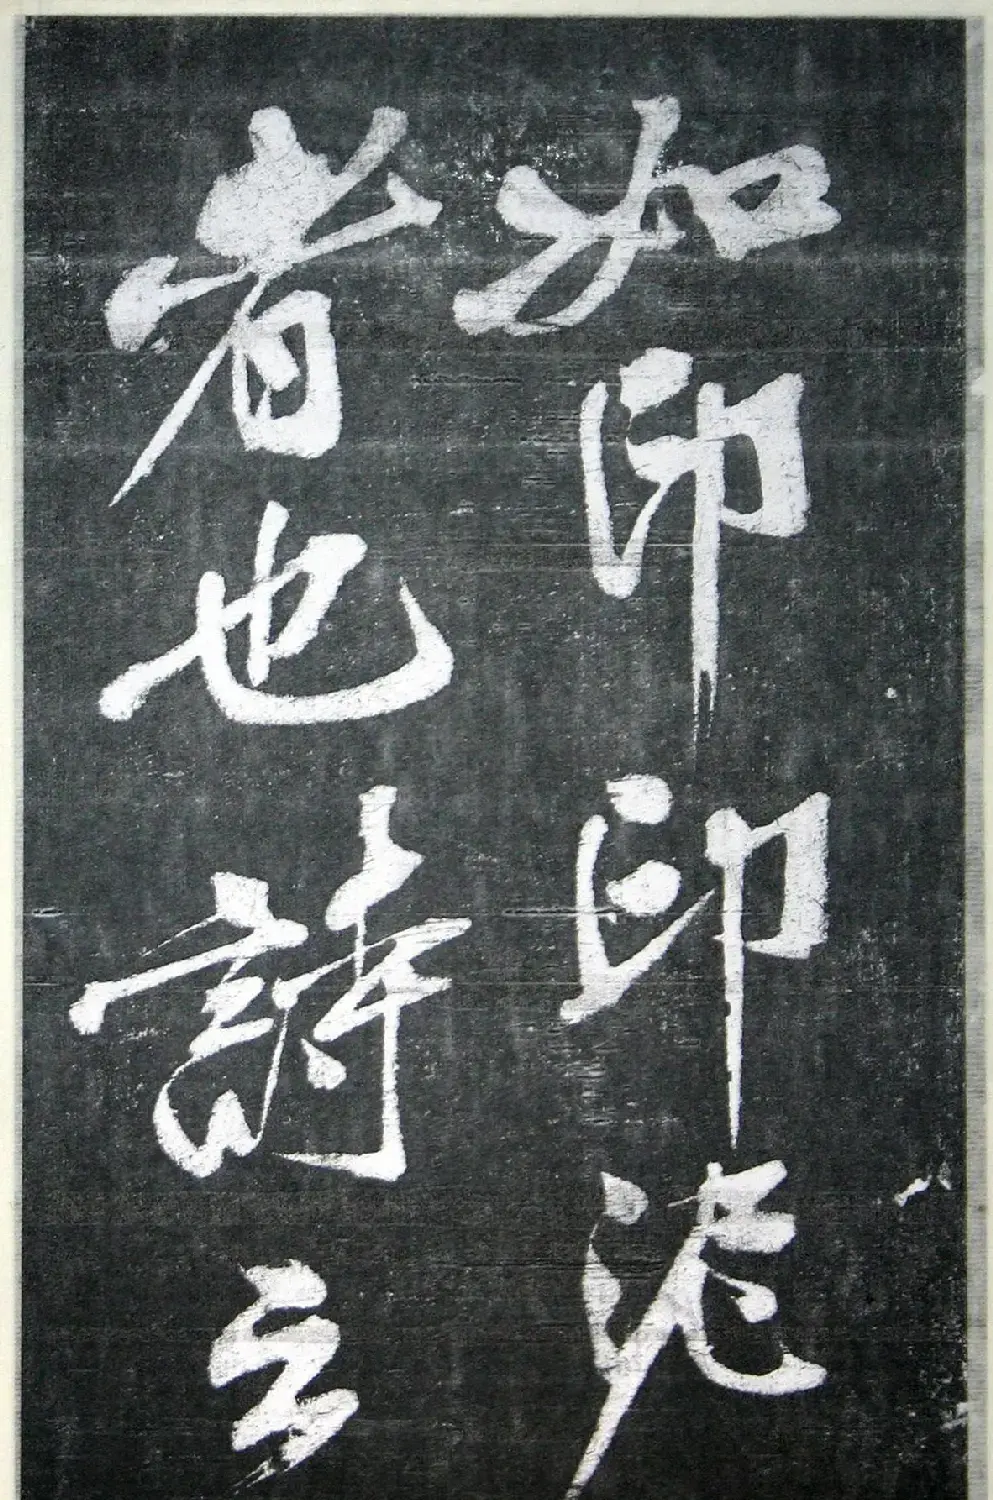 如印印泥
者也詩云